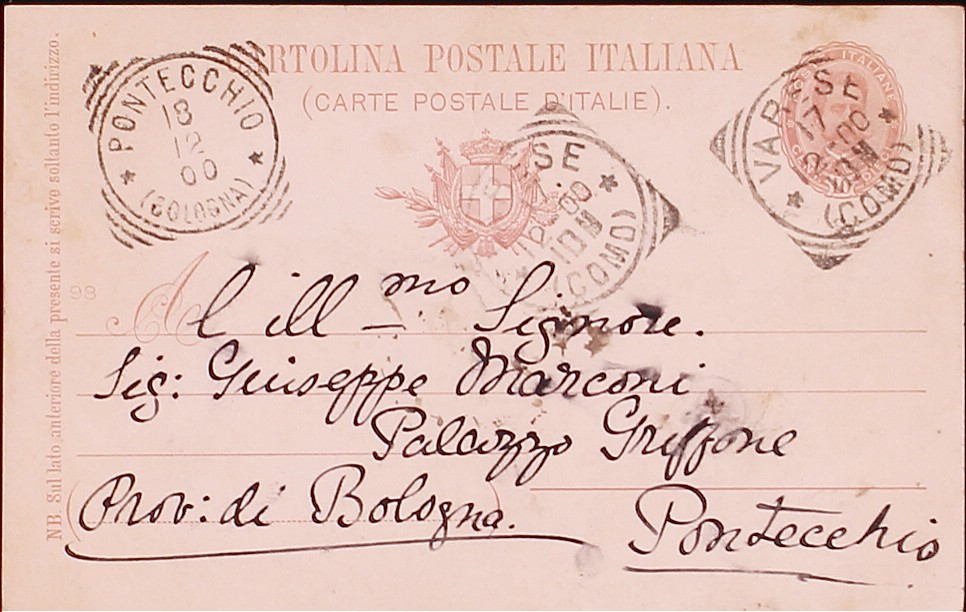 CARTOLINA POSTALE ITALIANA
(CARTE POSTALE D'ITALIE).
NB. Sul lato anteriore della presente si scrive soltanto l'indirizzo.
PONTECCHIO
18
12
00
(BOLOGNA)
VARESE
17
12 00
10 M
(COMO)
10
98
All ill—mo Signore.
Sig: Giuseppe Marconi
Palazzo Griffone
Prov: di Bologna.
Pontecchio